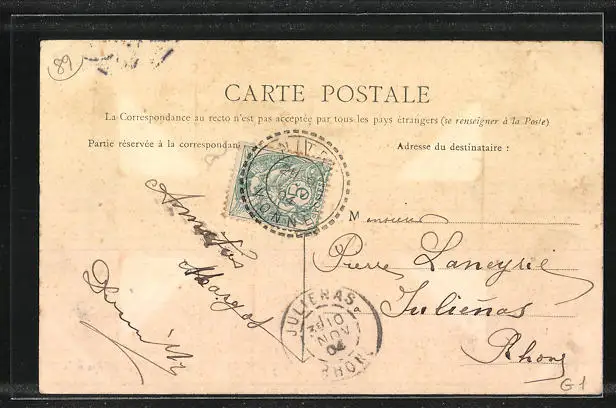 89
CARTE POSTALE
La Correspondance au recto n'est pas acceptée par tous les pays étrangers (se renseigner à la Poste)
Partie réservée à la correspondan
Adresse du destinataire :
YONNE
Amitiés
Margot
Monsieur
Pierre Laneyrie
Juliénas
Rhone
JULIENAS
10
NOV
04
RHONE
G1